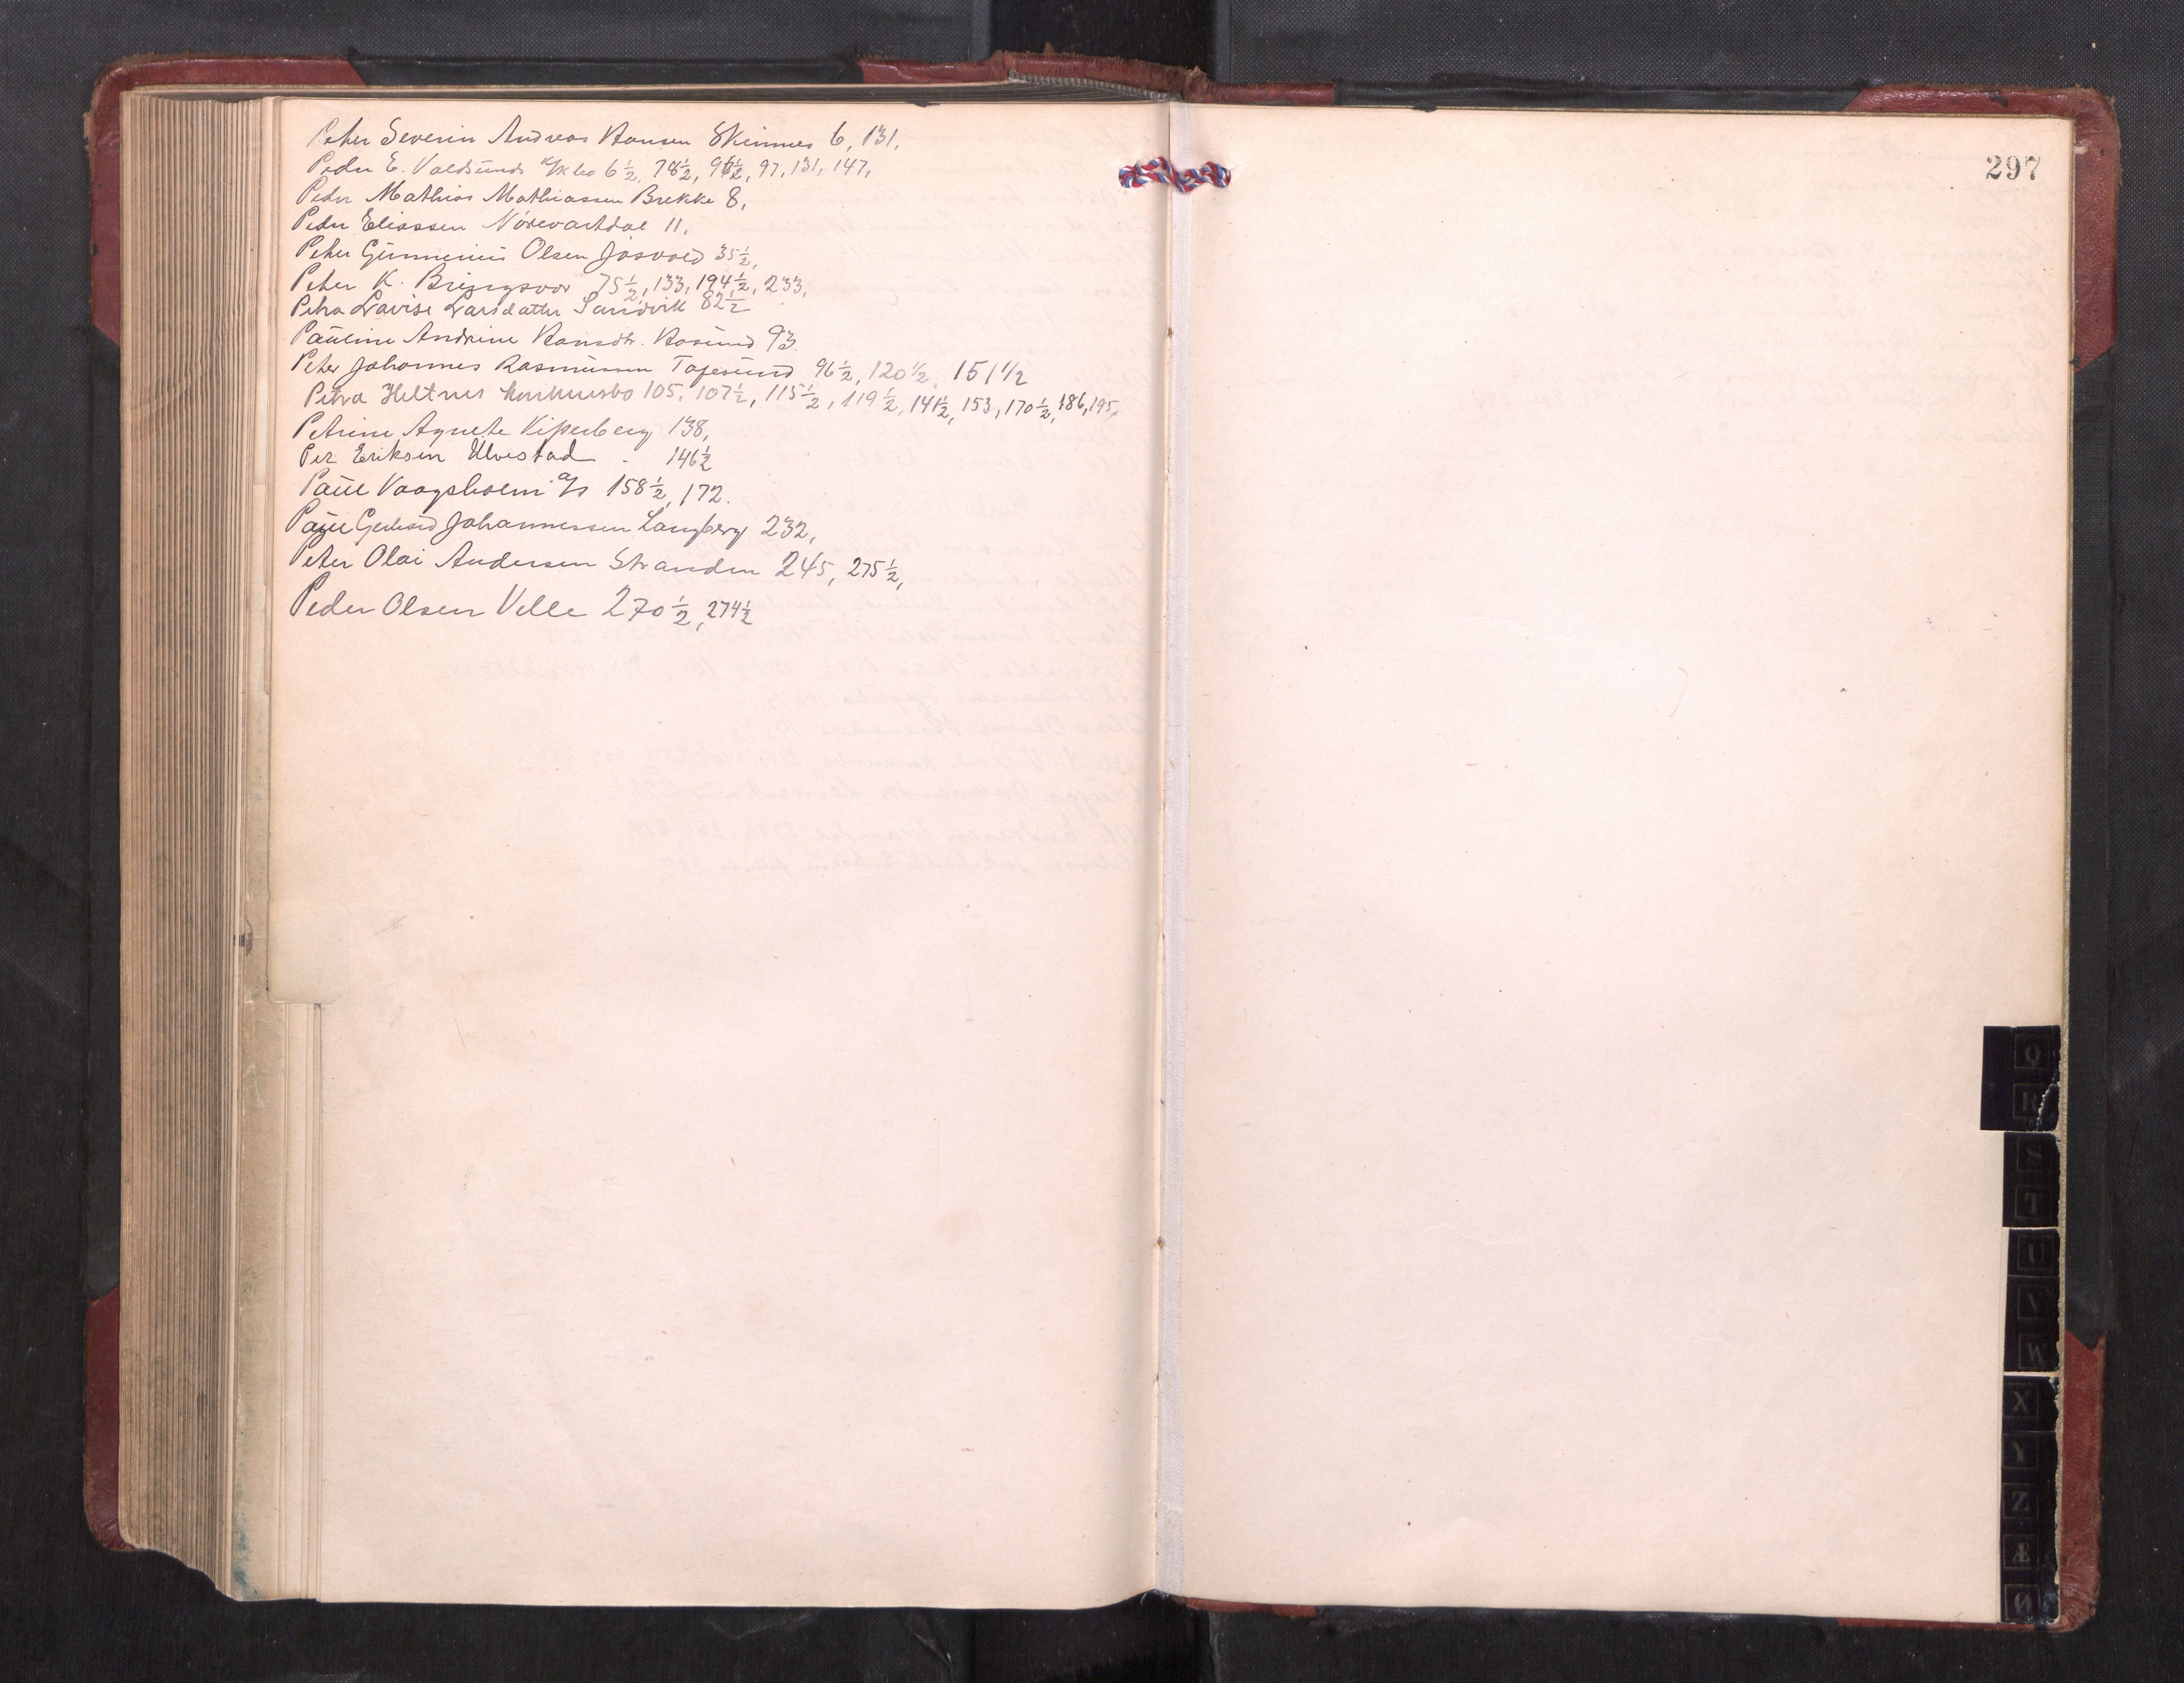 Peter Severin Andreas Hansen Skinnes 6, 131,
Peder E. Valdsund 6½, 78½, 96½, 97, 131, 147,
Peder Mathias Mathiassen Brekke 8,
Peder Eliassen Nórevartdal 11,
Peter Gunnerius Olsen Jøsvold 35½,
Peter K. Bringsvor 75½, 133, 194½, 233,
Petra Lovise Larsdatter Sandvik 82½
Pauline Andrine Hansdtr. Hasund 93.
Peter Johannes Rasmussen Tafjesund 96½, 120½, 151½
Petra Heltnes konkursbo 105, 107½, 115½, 119½, 141½, 153, 170½, 186, 195,
Petrine Agnete Kiperberg 138,
Per Eriksen Ulvestad 146½
Paul Vaagsholm a/s 158½, 172.
Paul Gerhard Johannessen Langberg 232,
Peter Olai Andersen Stranden 245, 275½,
Peder Olsen Velle 270½, 274½
297
Q
R
S
T
U
V
W
X
Y
Z
Æ
Ø